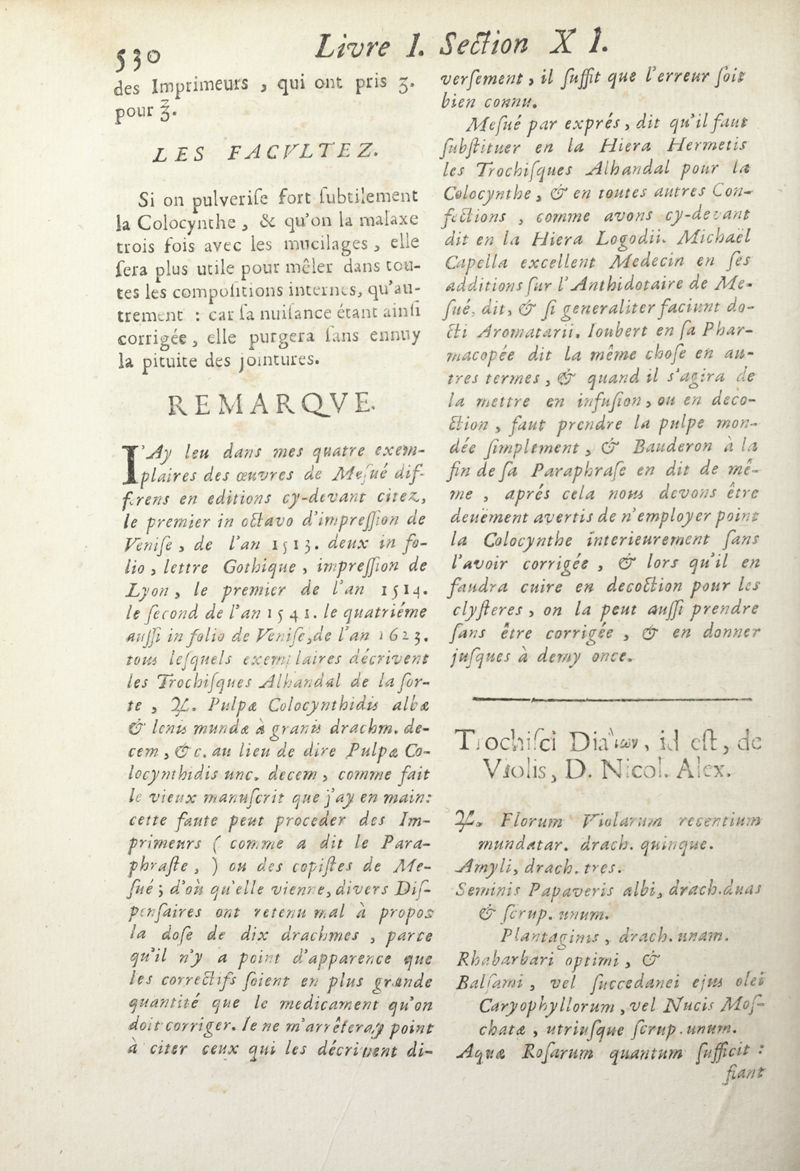 530
Livre I. Section X I.
des Imprimeurs , qui ont pris ʒ.
pour ℥.
LES FACVLTEZ.
Si on pulverise fort subtilement
la Colocynthe , & qu'on la malaxe
trois fois avec les mucilages , elle
sera plus utile pour mêler dans tou-
tes les compositions internes, qu'au-
trement : car sa nuisance étant ainsi
corrigée , elle purgera sans ennuy
la pituite des jointures.
REMARQVE.
I'Ay leu dans mes quatre exem-
plaires des œuvres de Mesué dif-
ferens en editions cy-devant citez,
le premier in octavo d'impression de
Venise , de l'an 1513. deux in fo-
lio , lettre Gothique , impression de
Lyon , le premier de l'an 1514.
le second de l'an 1541. le quatriéme
aussi in folio de Venise,de l'an 1623.
tous lesquels exemplaires décrivent
les Trochisques Alhandal de la sor-
te , ℞. Pulpæ Colocynthidis albæ
& lenis mundæ à granis drachm. de-
cem , &c. au lieu de dire Pulpæ Co-
locynthidis unc. decem , comme fait
le vieux manuscrit que j'ay en main:
cette faute peut proceder des Im-
primeurs ( comme a dit le Para-
phraste , ) ou des copistes de Me-
sué ; d'où qu'elle vienne, divers Dis-
pensaires ont retenu mal à propos
la dose de dix drachmes , parce
qu'il n'y a point d'apparence que
les correctifs soient en plus grande
quantité que le medicament qu'on
doit corriger. Ie ne m'arrêteray point
à citer ceux qui les décrivent di-
versement , il suffit que l'erreur soit
bien connu.
Mesué par exprés , dit qu'il faut
substituer en la Hiera Hermetis
les Trochisques Alhandal pour la
Colocynthe , & en toutes autres Con-
fections , comme avons cy-devant
dit en la Hiera Logodii. Michaël
Capella excellent Medecin en ses
additions sur l'Anthidotaire de Me-
sué, dit, & si generaliter faciunt do-
cti Aromatarii. Ioubert en sa Phar-
macopée dit la même chose en au-
tres termes , & quand il s'agira de
la mettre en infusion , ou en deco-
ction , faut prendre la pulpe mon-
dée simplement , & Bauderon à la
fin de sa Paraphrase en dit de mê-
me , aprés cela nous devons être
deuëment avertis de n'employer point
la Colocynthe interieurement sans
l'avoir corrigée , & lors qu'il en
faudra cuire en decoction pour les
clysteres , on la peut aussi prendre
sans être corrigée , & en donner
jusques à demy once.
Trochisci Dia ἴων , id est, de
Violis, D. Nicol. Alex.
℞. Florum Violarum recentium
mundatar. drach. quinque.
Amyli, drach. tres.
Seminis Papaveris albi, drach. duas
& scrup. unum.
Plantaginis , drach. unam.
Rhabarbari optimi , &
Balsami , vel succedanei ejus olei
Caryophyllorum , vel Nucis Mos-
chatæ , utriusque scrup. unum.
Aquæ Rosarum quantum sufficit :
fiant